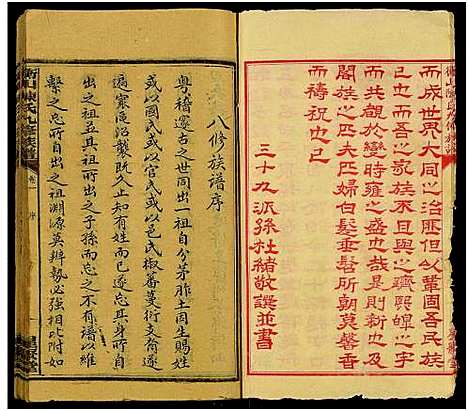 而成世界大同之治匪但以鞏固吾民族
已也而吾之家族不日與之躋熙皞之宇
共觀於變時雍之盛也哉是則新也及
閤族之匹夫匹婦白髮垂髫所朝莫馨香
而禱祝也
三十九派孫杜緒敬譔並書
八修族譜序
粵稽邃古之世同出一祖自分茅胙土因生賜姓
或以國氏或以官氏或以邑氏椒蕃蔓衍支裔遂
遍寰區沿襲既久人止知有姓而已遂忘其身所自
出之祖並其祖所自出之子孫而忘之不有譜以維
繫之忘所自出之祖淵源莫辨勢必強相比附如
衡山陳氏九修族譜
卷一
序